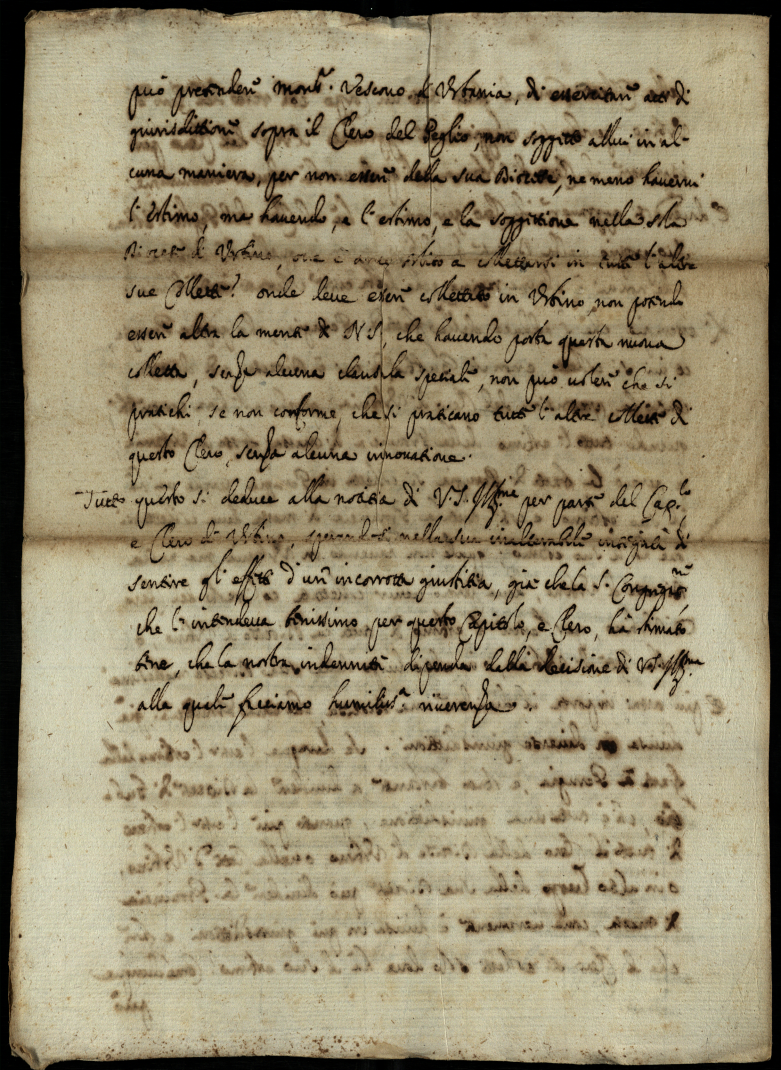 può pretendere mons.r Vescovo di Urbania, di essercitare atti di
giurisdittione sopra il Clero del Peglio, non soggetto allui in al-
cuna maniera, per non essere della sua Diocese, ne meno havervi
l'estimo, ma havendo, e l'estimo, e la soggettione nella sola
Diocese di Urbino, ove è a collettarsi in tutte l'altre
sue Collette? onde deve essere collettato in Urbino, non potendo
essere altra la mente di N S, che havendo posta questa nuova
colletta, senza alcuna clausola speciale, non può volere che si
pratichi, se non conforme, che si praticano tutte l'altre collette di
questo Clero, senza alcuna innovatione.
Tutto questo si deduce alla notitia di V.S. Ill.ma per parte del Cap.lo
e Clero di Urbino, sperandosi nella sua inalterabile integrità di
sentire gl'effetti d'un incorrotta giustitia, già che la S. Congregio.ne
che l'intendeva benissimo per questo Capitolo, e Clero, ha stimato
bene, che la nostra indennità dipenda dalla decisione di V.S. Ill.ma
alla quale facciamo humiliss.a riverenza.